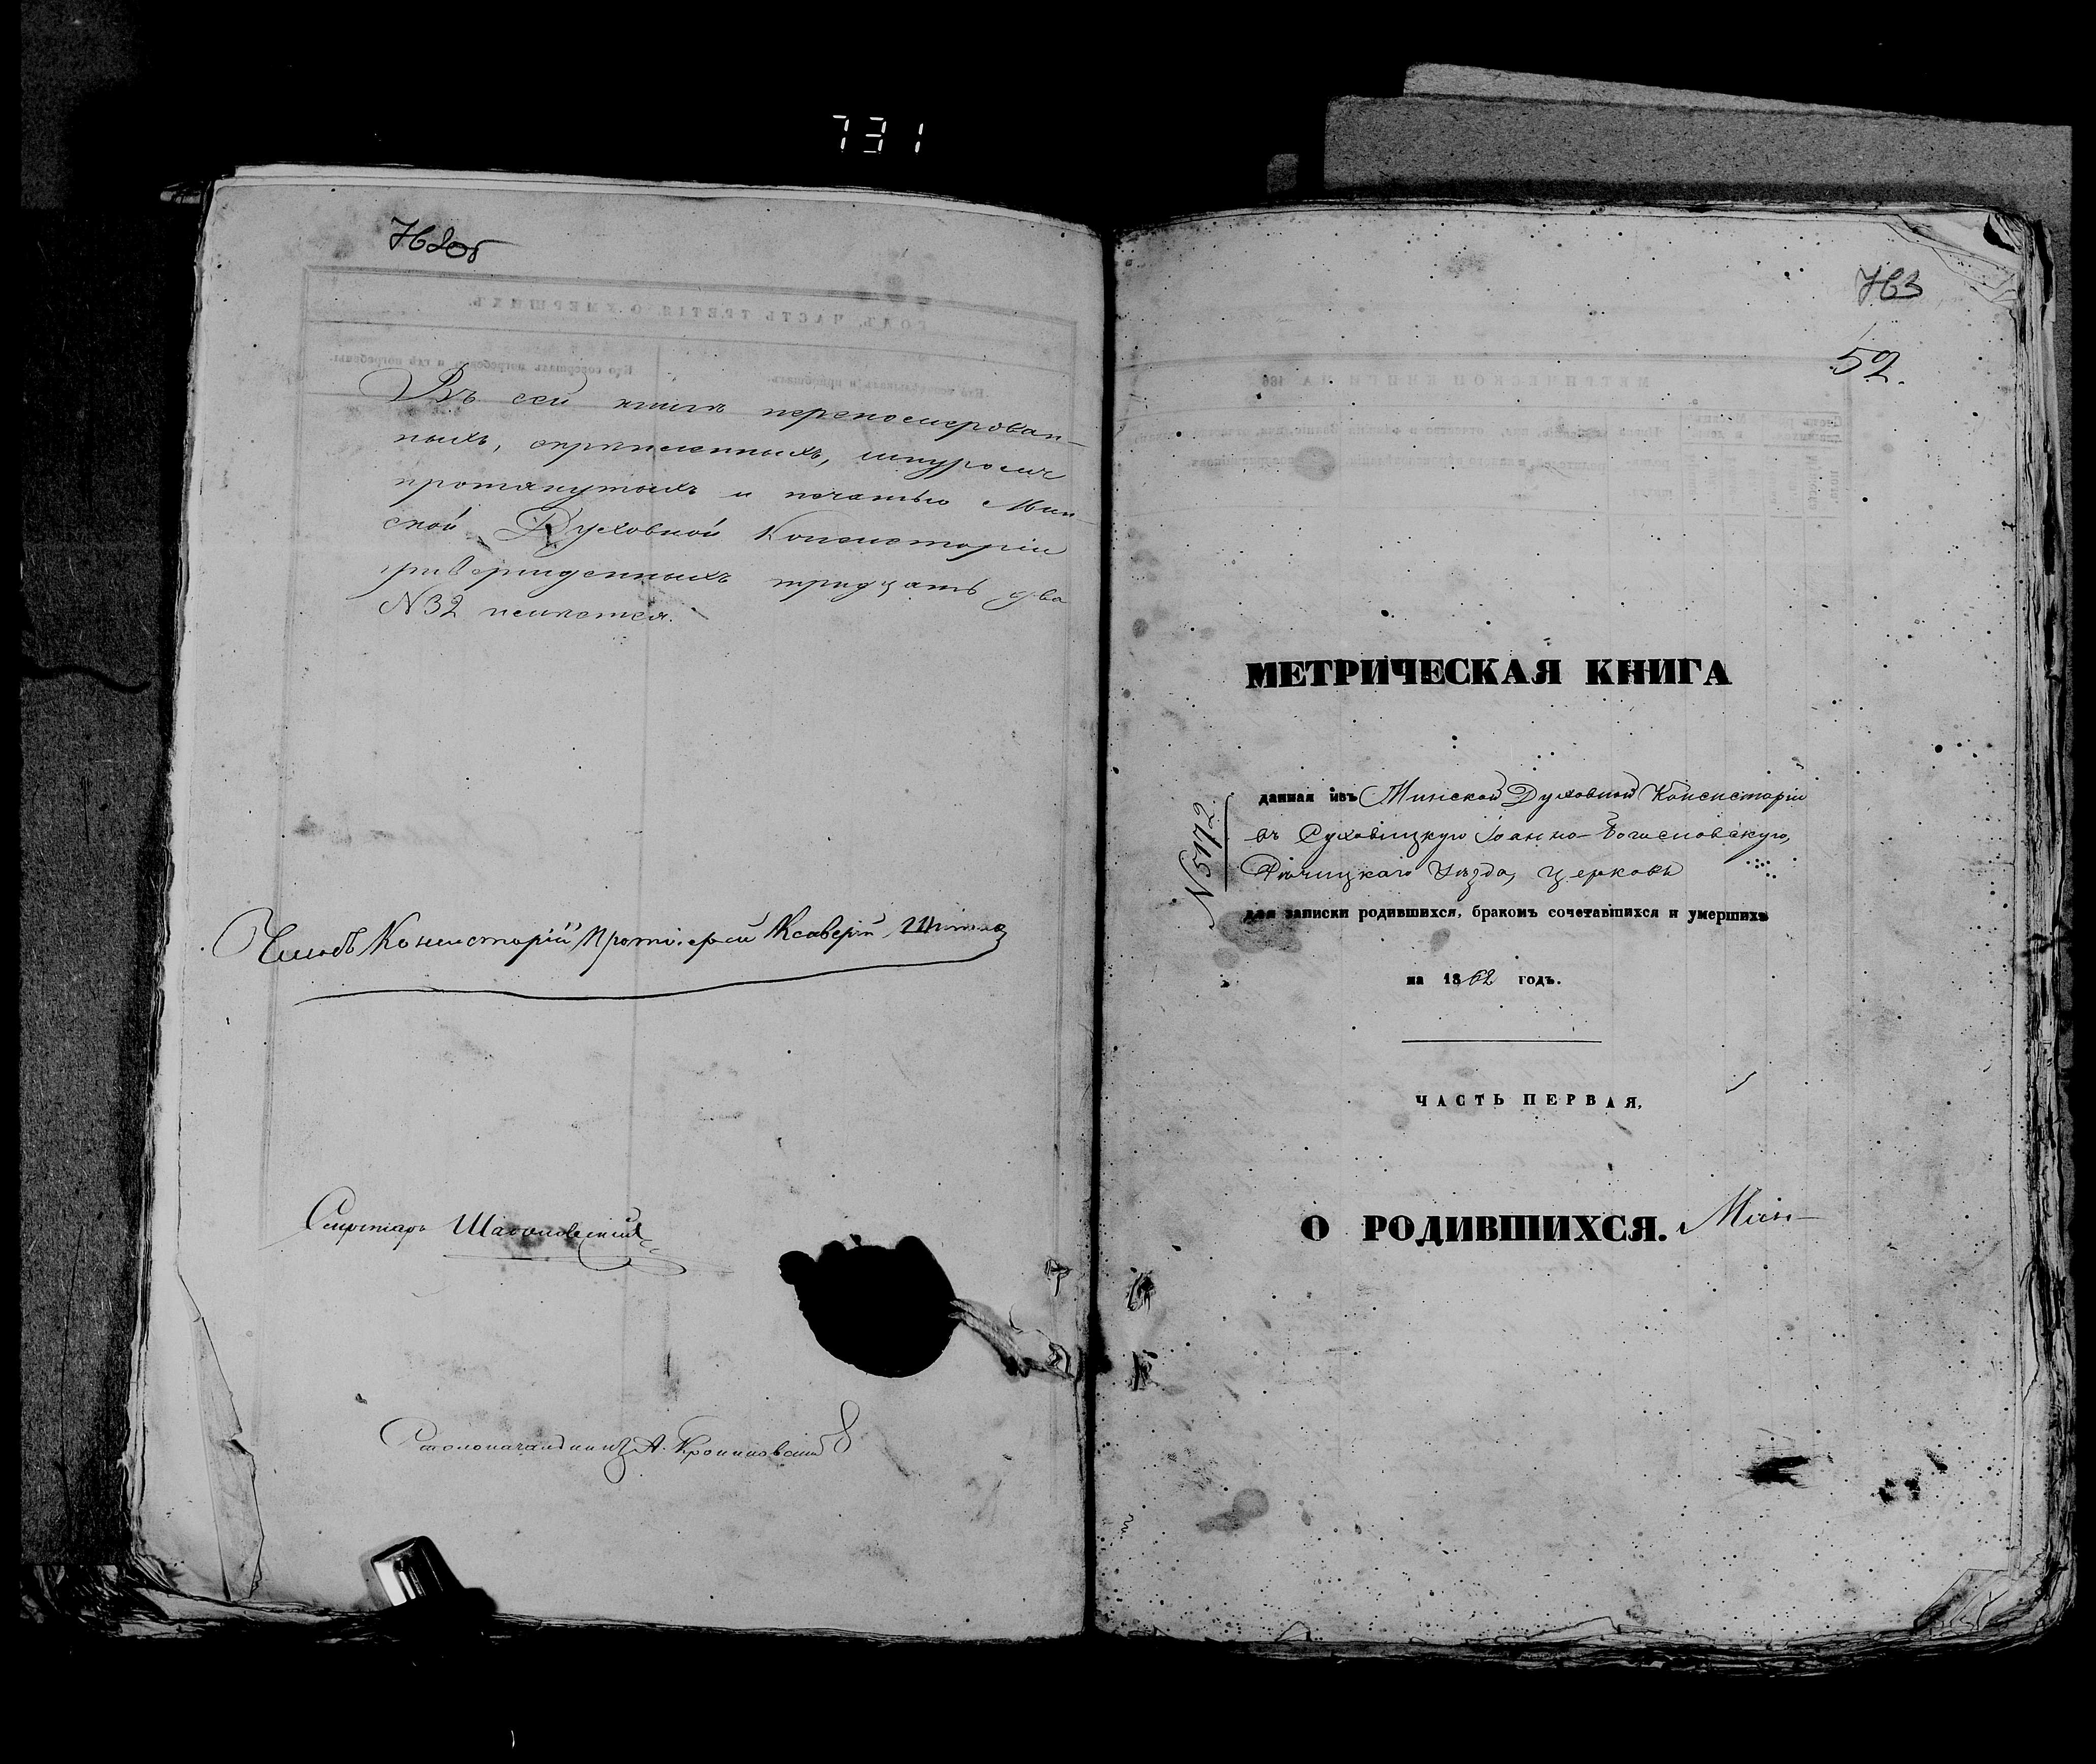 731
762об
Въ сей книгѣ перенумерован-
ныхъ, скрѣпленныхъ, шнуромъ
протянутыхъ и печатью Мин-
ской Духовной Консисторіи
утвержденныхъ тридцать два
N 32 имѣется.
Членъ Консисторіи Протоіерей Ксаверій
Секретарь
Столоначальникъ А.
763
52.
МЕТРИЧЕСКАЯ КНИГА
N 5172
данная изъ Минской Духовной Консисторіи
въ Суховицкую Іоанно-Богословскую,
Рѣчицкаго Уѣзда, церковь
для записки родившихся, бракомъ сочетавшихся и умершихъ
на 1862 годъ.
ЧАСТЬ ПЕРВАЯ,
О РОДИВШИХСЯ. Мин-